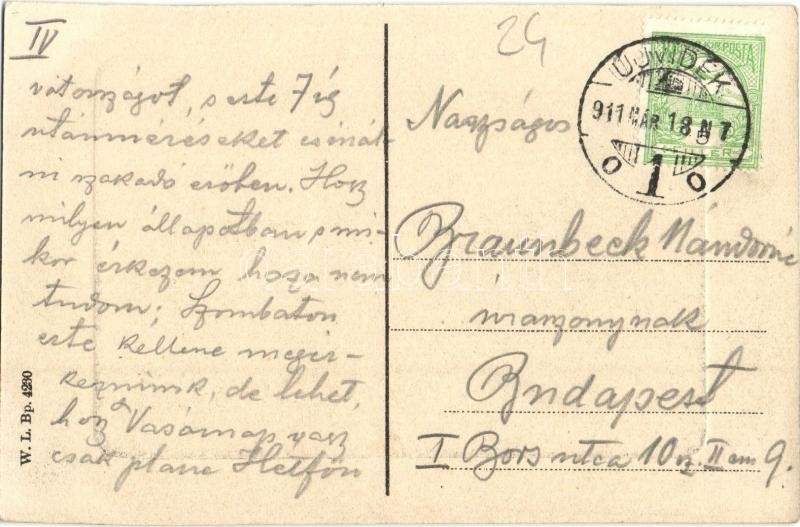 IV
vatorságot, s este 7 ig
utánméréseket csinál-
ni szakadó esőben. Hogy
milyen állapotban s mi-
kor érkezem haza nem
tudom; Szombaton
este kellene megér-
keznünk, de lehet,
hogy Vasárnap vagy
csak pláne Hétfőn
W. L. Bp. 4290
24
ÚJVIDÉK
911 MÁR 18 N 7
1
POSTA
Nagyságos
Braunbeck Nándorné
úrasszonynak
Budapest
I Bors utca 10 sz. II em 9.
darabanth